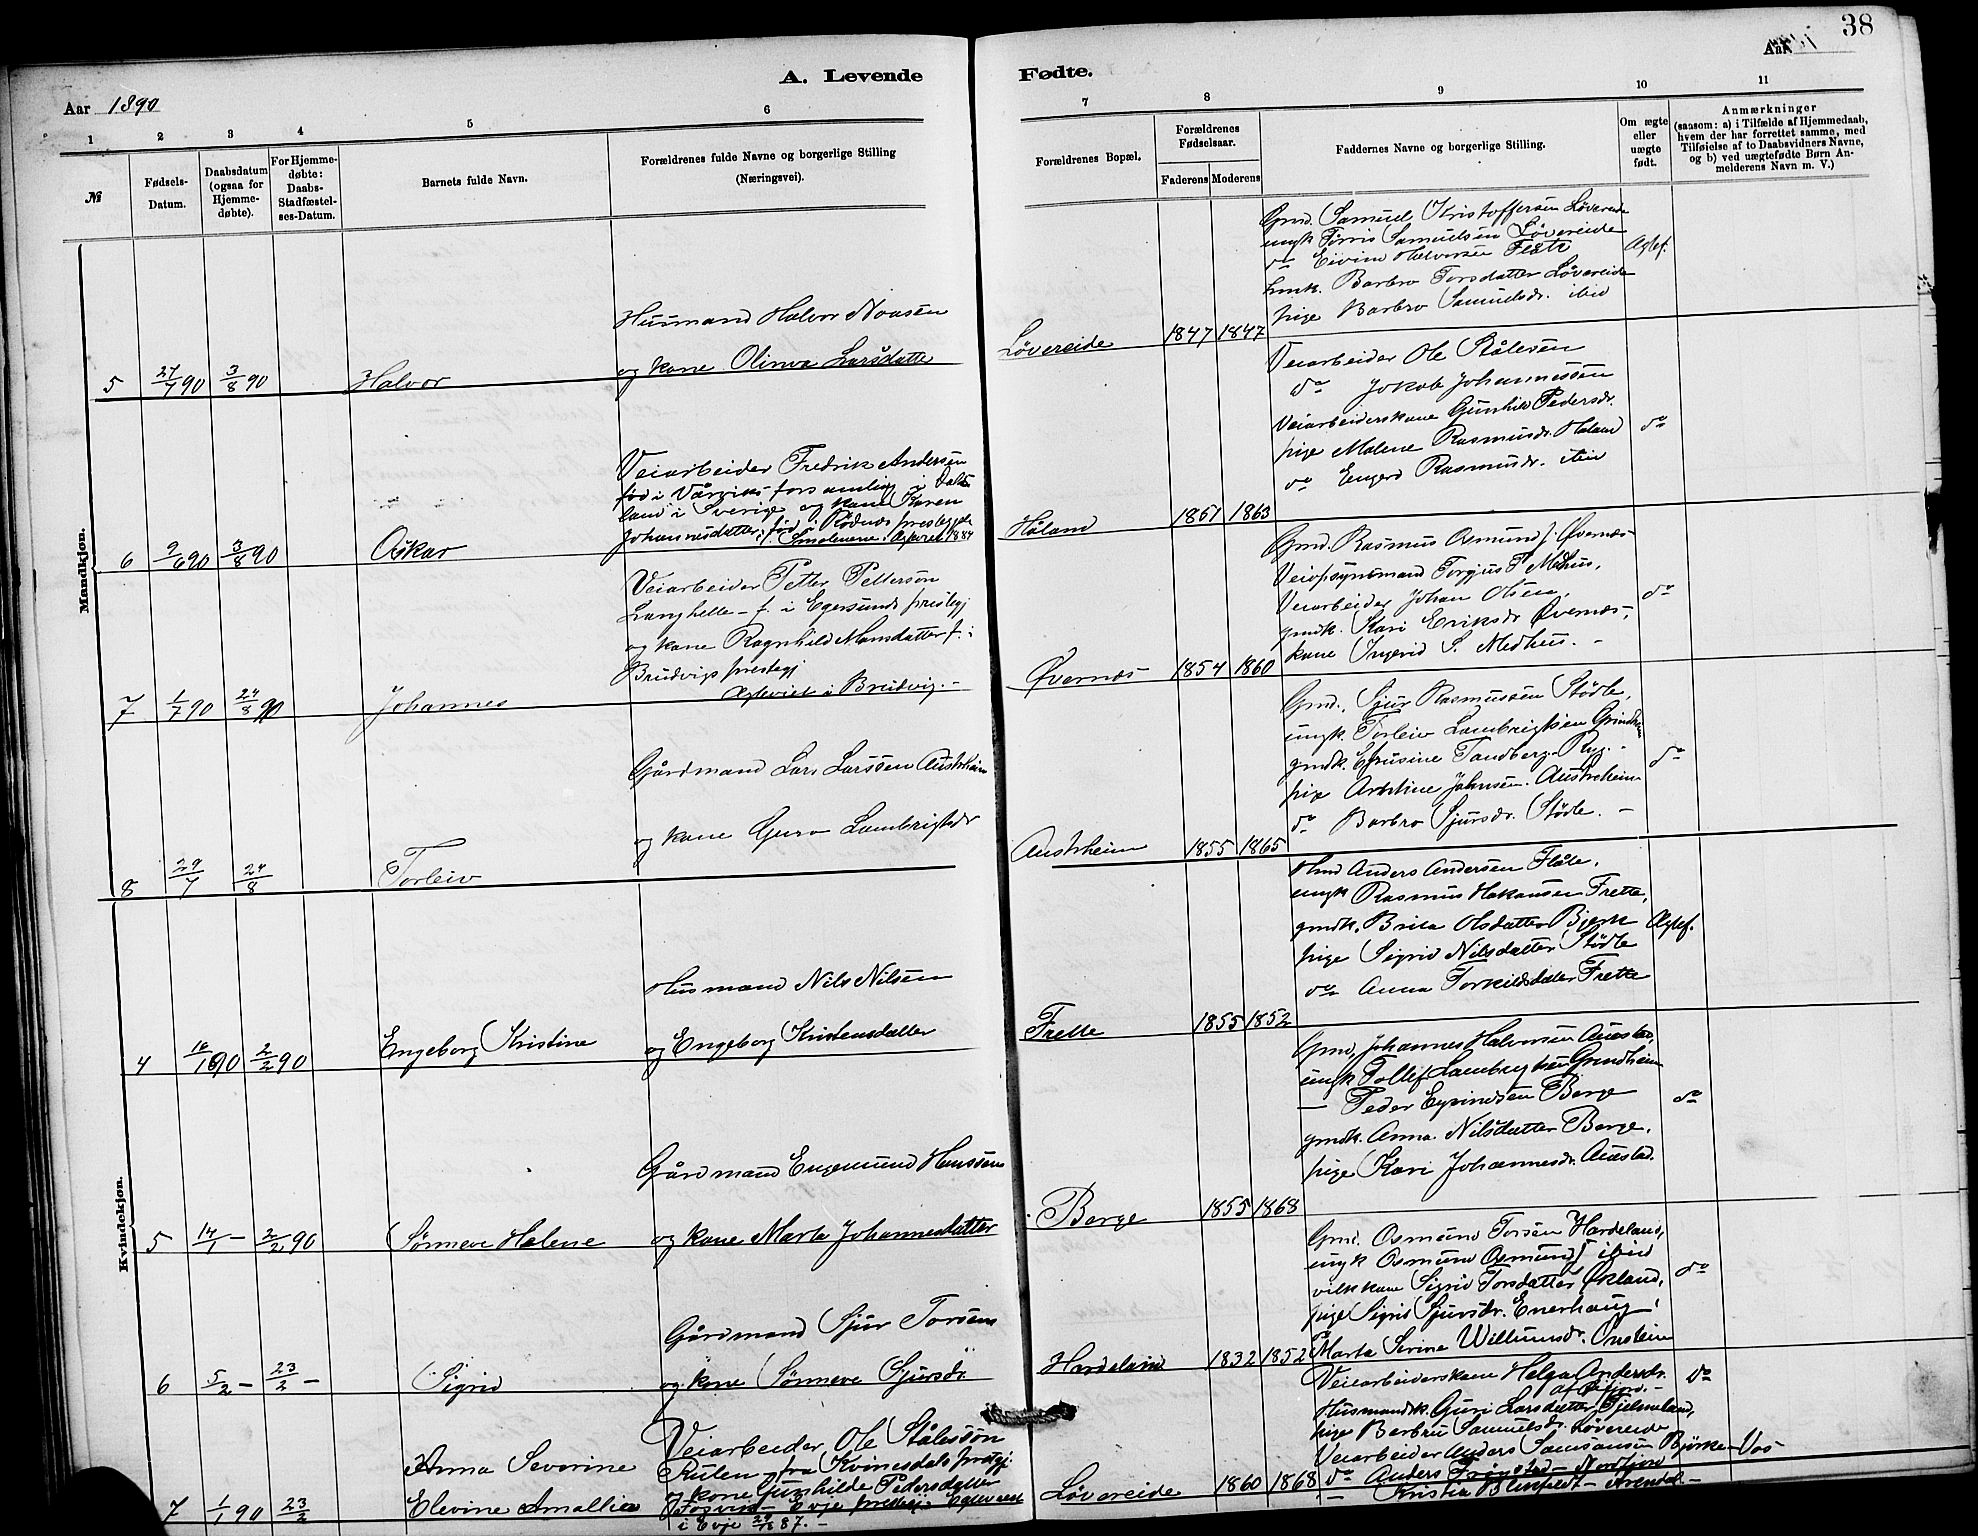 38
A. Levende Fødte.
Aar 1890
Aar
1 2 3 4 5 6 7 8 9 10 11
№
Fødsels-Datum.
Daabsdatum (ogsaa for Hjemme-døbte).
For Hjemme-døbte: Daabs-Stadfæstel-ses-Datum.
Barnets fulde Navn.
Forældrenes fulde Navne og borgerlige Stilling
(Næringsvei).
Forældrenes Bopæl.
Forældrenes Fødselsaar.
Faderens Moderens
Faddernes Navne og borgerlige Stilling.
Om ægte eller uægte født.
Anmærkninger
(saasom: a) i Tilfælde af Hjemmedaab,
hvem der har forrettet samme, med
Tilføielse af to Daabsvidners Navne,
og b) ved uægtefødte Børn An-
melderens Navn m. V.)
Mandkjøn.
5 27/7 90 3/8 90 Halvor
Husmand Halvor Noasen
og kone Olina Larsdatte
Løvereide 1847 1847
Gmd. Samuel Kristoffersen Løvereide
ungk Tørris Samuelsen Løvereide
do Eivind Halvorsen Flåte
hmk. Barbro Torsdatter Løvereide
pige Barbro Samuelsdr. ibid
Ægtef.
6 9/6 90 3/8 90 Oskar
Veiarbeider Fredrik Andersen
fød i Vårviks forsamling i Dals
land i Sverige og kone Karen
Johannesdatter, fød i Rødnes prestegjeld
Smålenene. Ægteviet 1884
Håland 1861 1863
Veiarbeider Ole Stålesen
do Jokob Johannessen
Veiarbeiderskone Gunhild Pedersdr.
pige Malene Rasmusdr. Håland
do Engerd Rasmusdr. ibid
do
7 1/7 90 24/8 90 Johannes
Veiarbeider Petter Petterson
Langhelle - f. i Egersunds prestegj
og kone Ragnhild Monsdatter f. i
Brudvigs prestegj
Ægteviet i Brudvig. -
Øvernæs 1854 1860
Gmd. Rasmus Osmunds. Øvernæs
Veiopsynsmand Torgjus T. Medhus,
Veiarbeider Johan Olsen,
gmdk. Kari Eriksdr Øvernæs,
kone Ingerid S. Medhus. -
do
8 29/7 24/8 Torleiv
Gårdmand Lars Larssen Austrheim
og kone Guro Lambrigtsdr
Austrheim 1855 1865
Gmd. Sjur Rasmussen Stødle,
ungk. Torleiv Lambrigtsen Grindheim
gmdk. Efrusine Tandberg. Ryg. -
pige Johnsen. Austrheim
do Barbro Sjursdr. Stødle. -
do
Kvindekjøn.
4 16/1 90 2/2 90 Engeborg Kristine
Husmand Nils Nilsen
og Engeborg Kristensdatter
Frette 1855 1852
Hmd Anders Andersen Flåte,
ungk Rasmus Hakonsen Frette,
gmdk. Brita Olsdatter Bjerk
pige Sigrid Nilsdatter Stødle
do Anna Torkildsdatter Frette
Ægtef.
5 14/1 - 2/2 90 Sønneve Halene
Gårdmand Engemund Hanssen
og kone Marta Johannesdatter
Berge 1855 1868
Gmd, Johannes Halvorsen Austad,
ungk Tollef Lambrigtsen Grindheim
- Peder Eyvindsen Berge
gmdk. Anna Nilsdatter Berge,
pige Kari Johannesdr. Austad.
do
6 5/2 - 23/2 - Sigrid
Gårdmand Sjur Torsen
og kone Sønneve Sjursdr.
Hardeland 1832 1852
Gmd. Osmund Torsen Hardeland,
ungk Osmund Osmunds. ibid
kone Sigrid Torsdatter Økland,
pige Sigrid Sjursdr. Enerhaug,
Marta Serine Willumsdr.
do
7 1/1 90 23/2 Anna Severine
Elevine Amallia
Veiarbeider, Ole Stålesson
Rulen, fra Kvinesdals prstgj.
og kone Gunhilde Pedersdatter
Evje prestegj. Egteviet
i Evje 87. -
Løvereide 1860 1868
Veiarbeiderskone Helga Andersdr.
Husmandk. Guri Larsdatter Fjelmeland,
pige Barbru Samuelsdr. Løvereide
Veiarbeider Anders Samsonsen Bjørke - Vos
do Anders - Nordfjord
- Kristen - Arendal -
do